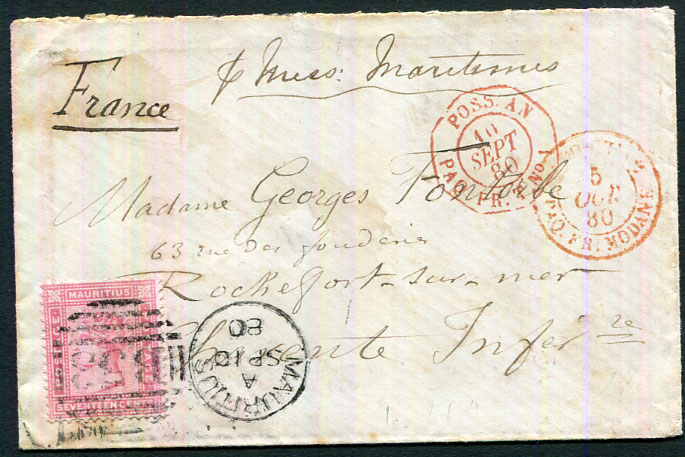 France
p Mess. Maritimes
POSS. AN
10
SEPT
80
PAQ. FR. T No 1
5
OCT
80
PAQ. FR. MODANE
Madame Georges
63 rue des fonderies
Rochefort-sur-mer
Charente Infér re
MAURITIUS
SEVENTEEN CENTS
MAURITIUS
A
SP 10
80